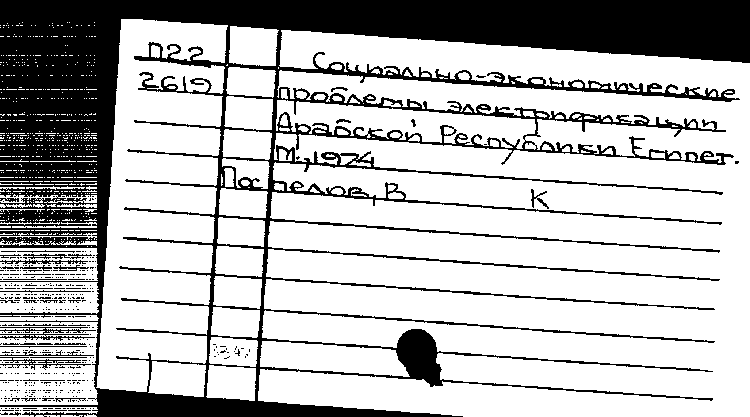 П22 Социально-экономические
2619 проблемы электрификации
Арабской Республики Египет.
М., 1974
Поспелов, В К